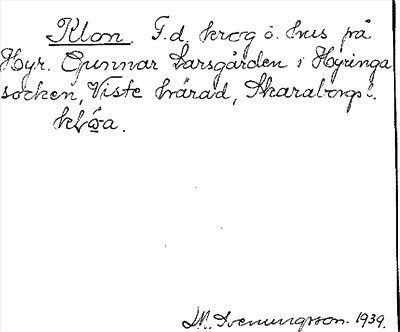 Klon. F.d. krog o. hus på
Hyr. Gunnar Larsgården i Hyringa
socken, Viste härad, Skaraborgs l.
M. Svenungsson. 1939.